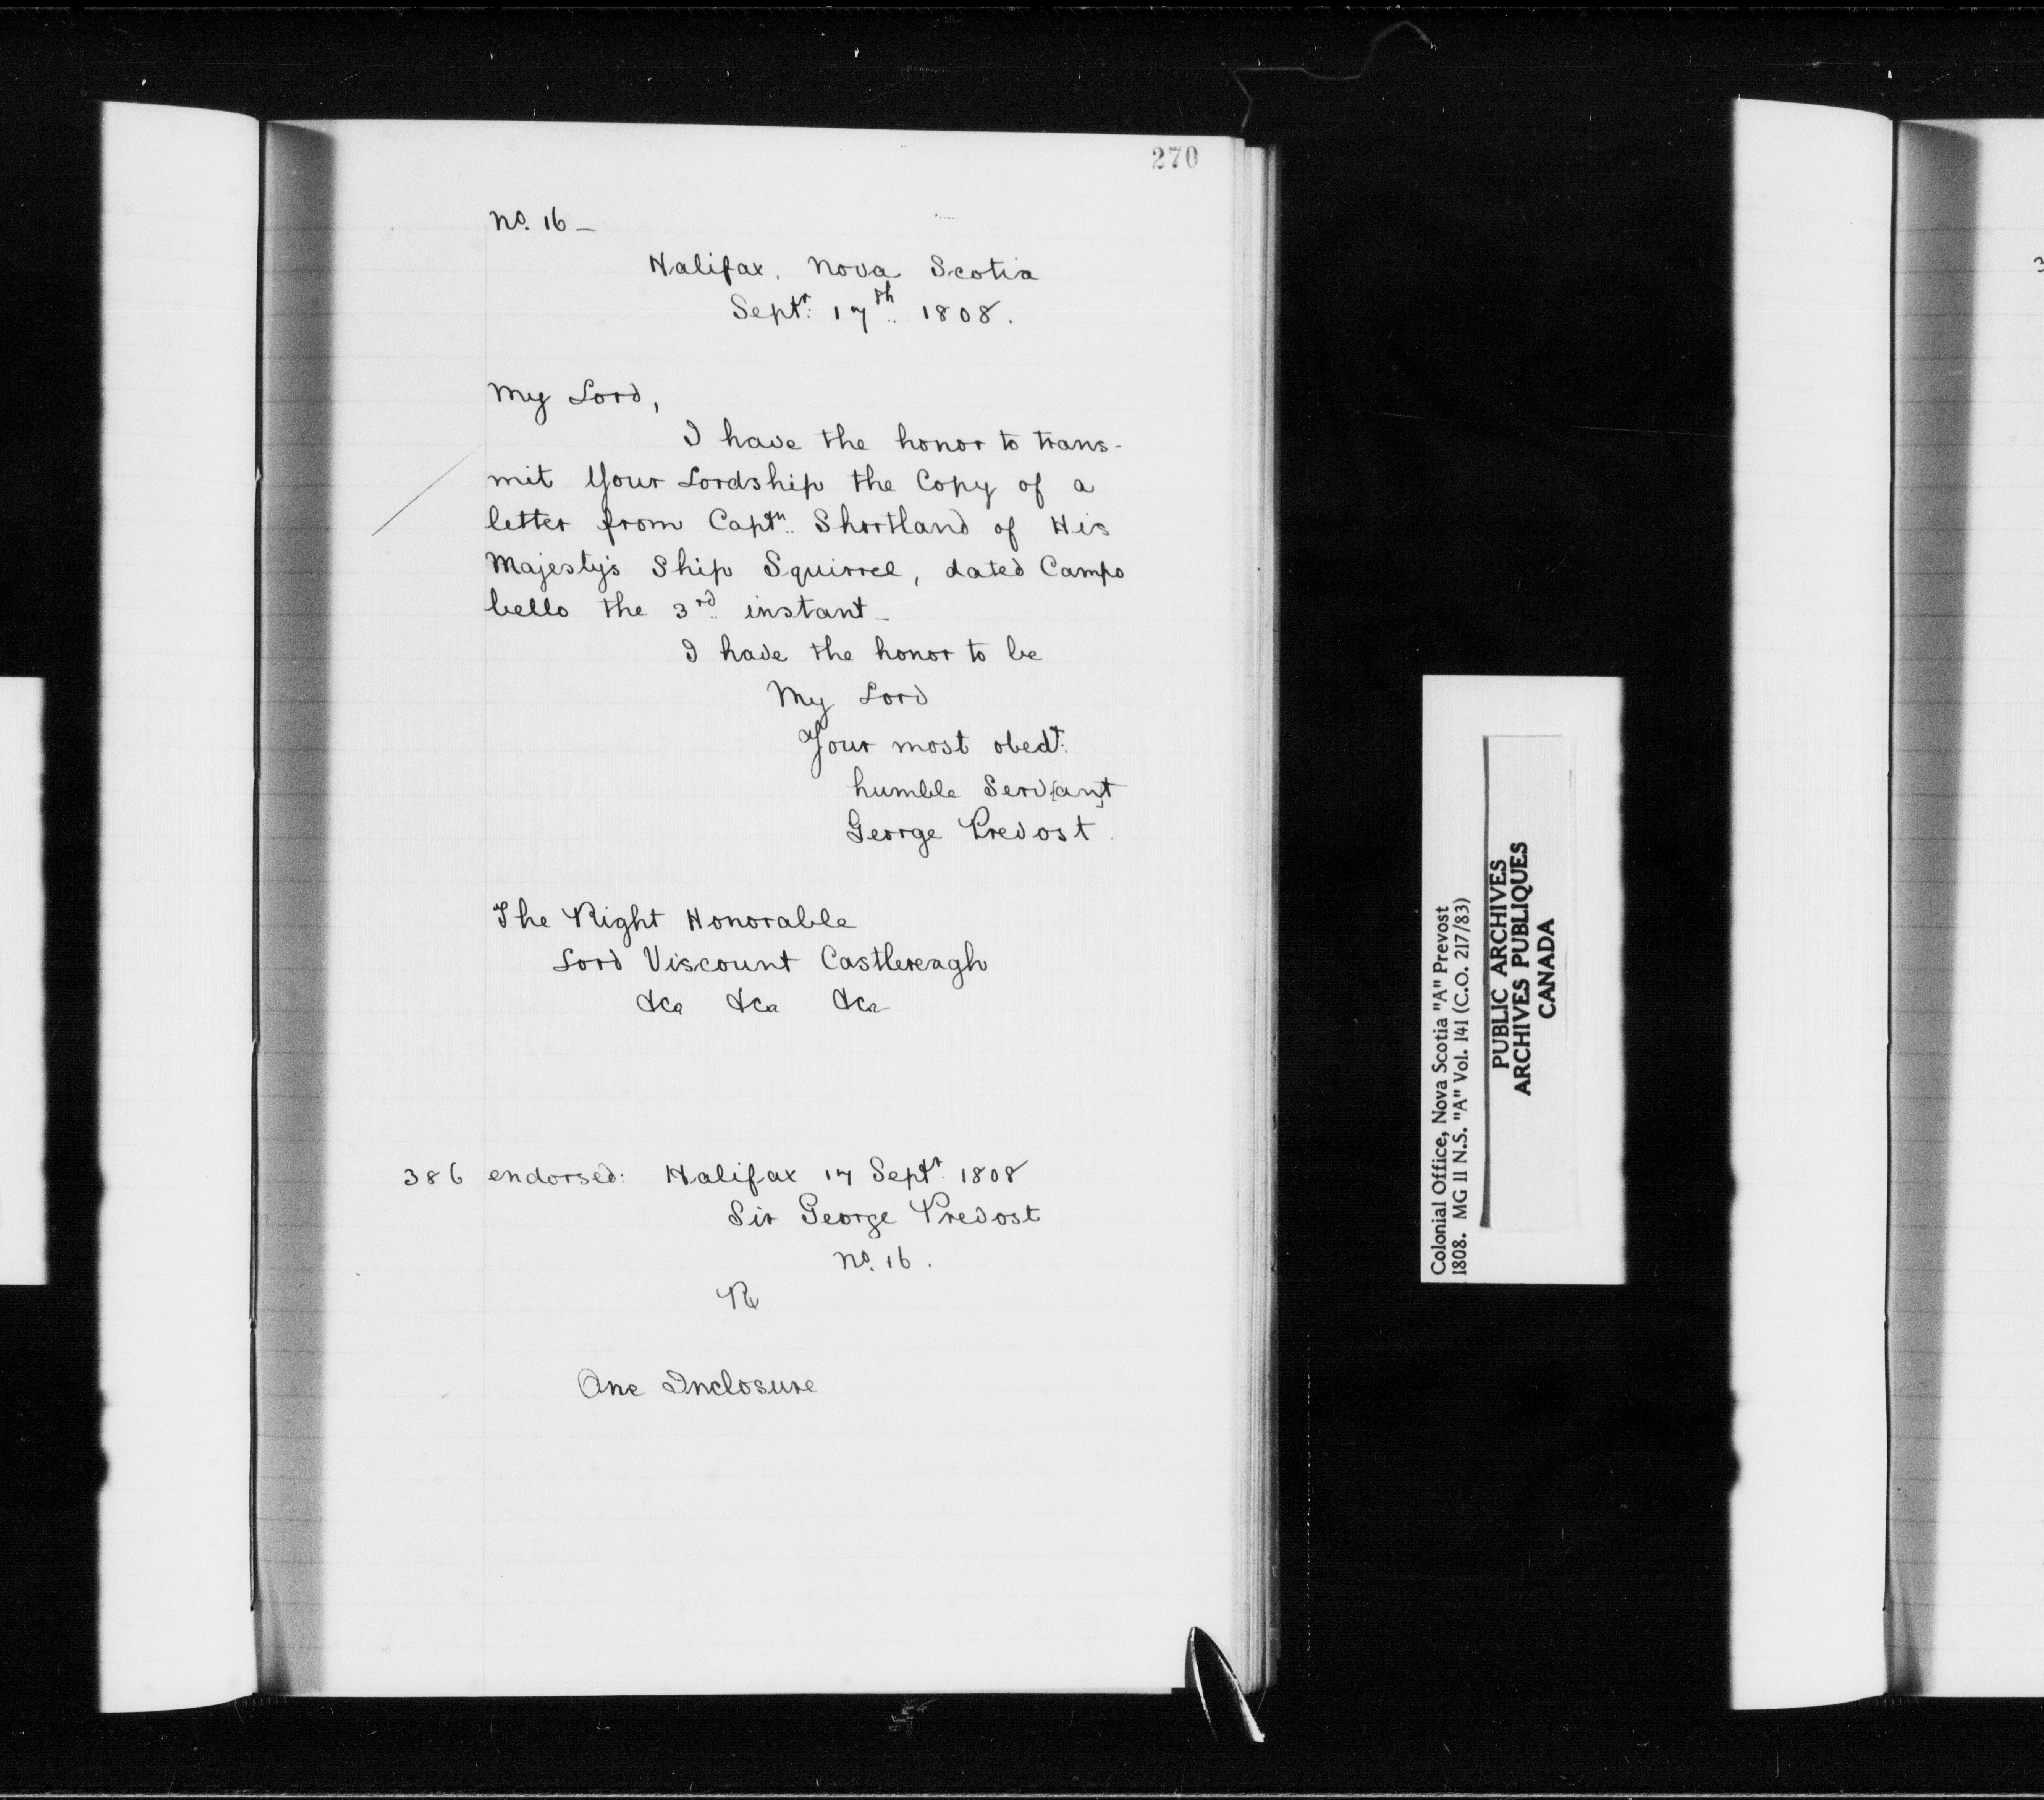 270
No. 16 –
Halifax, Nova Scotia
Septr. 17th. 1808.
My Lord,
I have the honor to trans-
mit Your Lordship the Copy of a
letter from Captn. Shortland of His
Majesty's Ship Squirrel, dated Campo
bello the 3rd. instant –
I have the honor to be
My Lord
Your most obedt.
humble Serv[an]t
George Prevost.
The Right Honorable
Lord Viscount Castlereagh
&ca &ca &ca
386 endorsed: Halifax 17 Septr. 1808
Sir George Prevost
No. 16.
R
One Inclosure
Colonial Office, Nova Scotia "A" Prevost
1808. MG 11 N.S. "A" Vol. 141 (C.O. 217/83)
PUBLIC ARCHIVES
ARCHIVES PUBLIQUES
CANADA